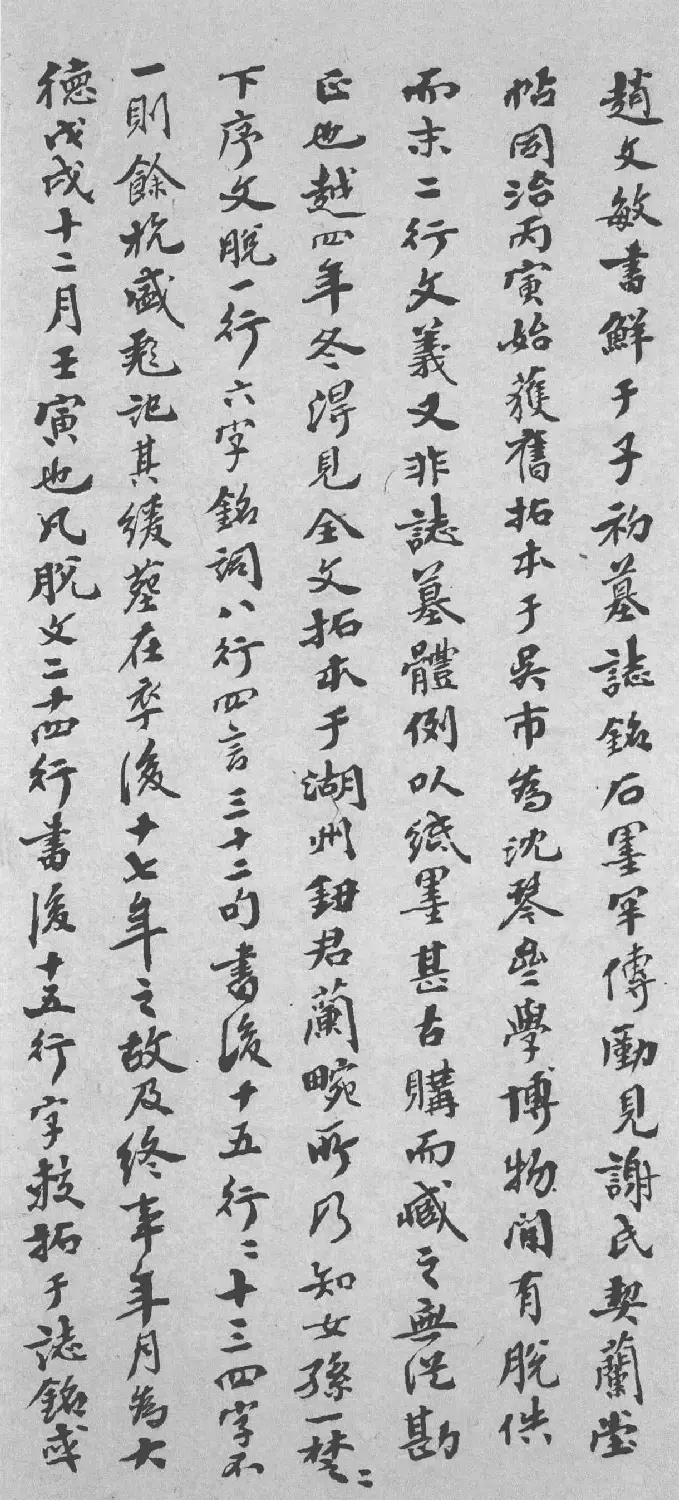 趙文敏書鮮于子初墓誌銘石墨罕傳勵見謝氏契蘭堂
帖同治丙寅始獲舊拓本于吳市為沈琴學博物間有脫佚
而末二行文義又非誌墓體例以紙墨甚古購而臧之無從勘
正也越四年冬得見全文拓本于湖州鈕君蘭畹所乃知女孫一楚二
下序文脫一行六字銘詞八行四言三十二句書後十五行二十三四字不
一則餘杭盛彪記其緩葬在卒後十七年之故及終事年月為大
德戊戌十二月壬寅也凡脫文二十四行書後十五行字較拓于誌銘或